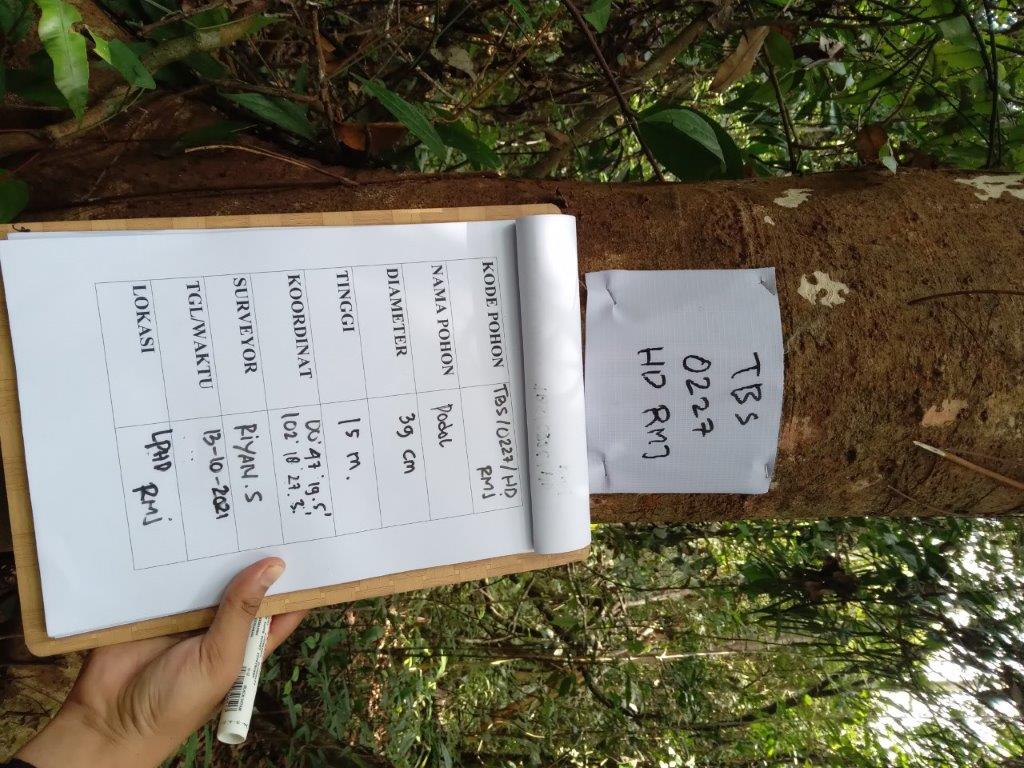 TBS
0227
HD RMJ
KODE POHON TBS/0227/HD
RMJ
NAMA POHON Dadal
DIAMETER 39 cm
TINGGI 15 m.
KOORDINAT 00° 47' 19.5"
102° 18' 27.3"
SURVEYOR RiYAN.S
TGL/WAKTU 13-10-2021
LOKASI LPHD RMJ